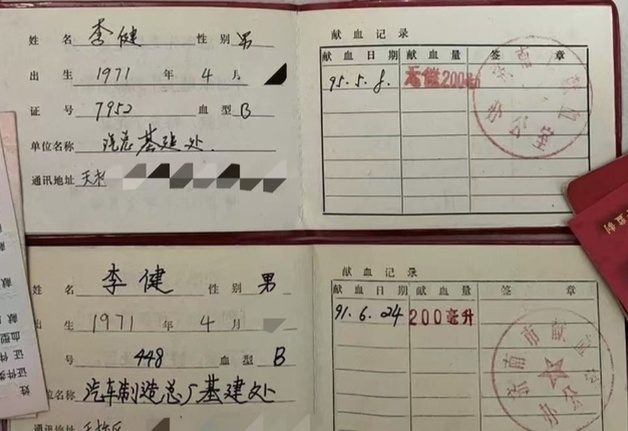 姓名 李健 性别 男
出生 1971 年 4 月
证号 7952 血型 B
单位名称 汽总基建处
通讯地址 天
献血记录
献血日期 献血量 签章
95.5.8. 无偿200
姓名 李健 性别 男
出生 1971 年 4 月
号 448 血型 B
位名称 汽车制造总厂基建处
通讯地址
献血记录
献血日期 献血量 签章
91.6.24 200毫升